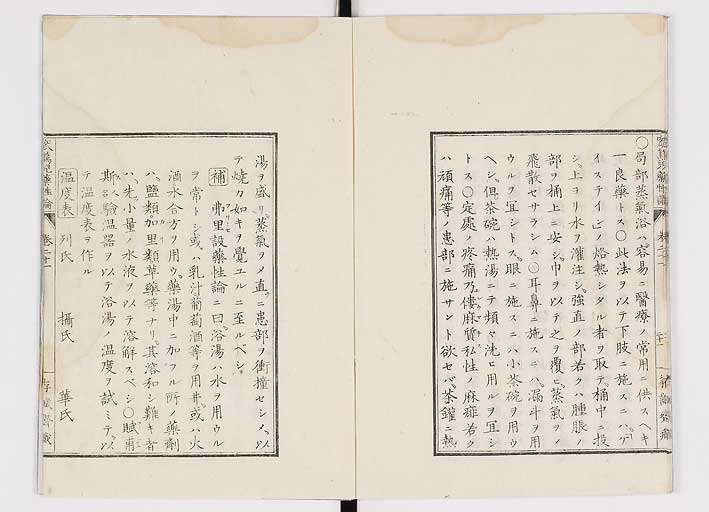 〇局部蒸氣浴ハ容易ニ醫療ノ常用ニ供スヘキ
一良藥トス〇此法ヲ以テ下肢ニ施スニハ
イステイーンノ烙熱シタル者ヲ取テ桶中ニ投
シ上ヨリ水ヲ灌注シ強直ノ部若クハ腫脹ノ
部ヲ桶上ニ安シ巾ヲ以テ之ヲ覆ヒ蒸氣ヲメ
飛散セサラシム〇耳鼻ニ施スニハ漏斗ヲ用
ウルヲ冝シトス眼ニ施スニハ小茶碗ヲ用ウ
ヘシ但茶碗ハ熱湯ニテ頻々洗ヒ用ルヲ冝シ
トス〇定處ノ疼痛乃僂麻質私性ノ麻痺若ク
ハ頑痛等ノ患部ニ施サント欲セバ茶鑵ニ熱
湯ヲ盛リ蒸氣ヲメ直ニ患部ヲ衝撞セシメ以
テ燒カ如キヲ覺ユルニ至ルベシ
補 弗里設藥性論ニ曰浴湯ハ水ヲ用ウル
ヲ常トシ或ハ乳汁葡萄酒等ヲ用井或ハ火
酒水合方ヲ用ウ藥湯中ニ加フル所ノ藥劑
ハ鹽類加里類草藥等ナリ其溶和シ難キ者
ハ先小量ノ水液ヲ以テ溶解スベシ〇賦甫
斯驗温器ヲ以テ浴湯ノ温度ヲ試ミテ以
テ温度表ヲ作ル
温度表 列氏 攝氏 華氏
卷二十一